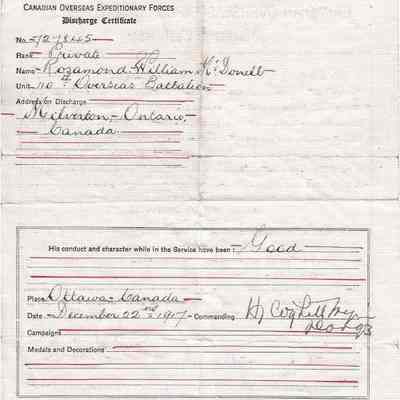 CANADIAN OVERSEAS EXPEDITIONARY FORCES
Discharge Certificate
No. 727845
Rank Private
Name Rosamond William McDonell
Unit 110th Overseas Battalion
Address on Discharge
Milverton, Ontario,
Canada.
His conduct and character while in the Service have been: Good
Place Ottawa - Canada
Date December 22nd 1917 Commanding
Campaigns
Medals and Decorations